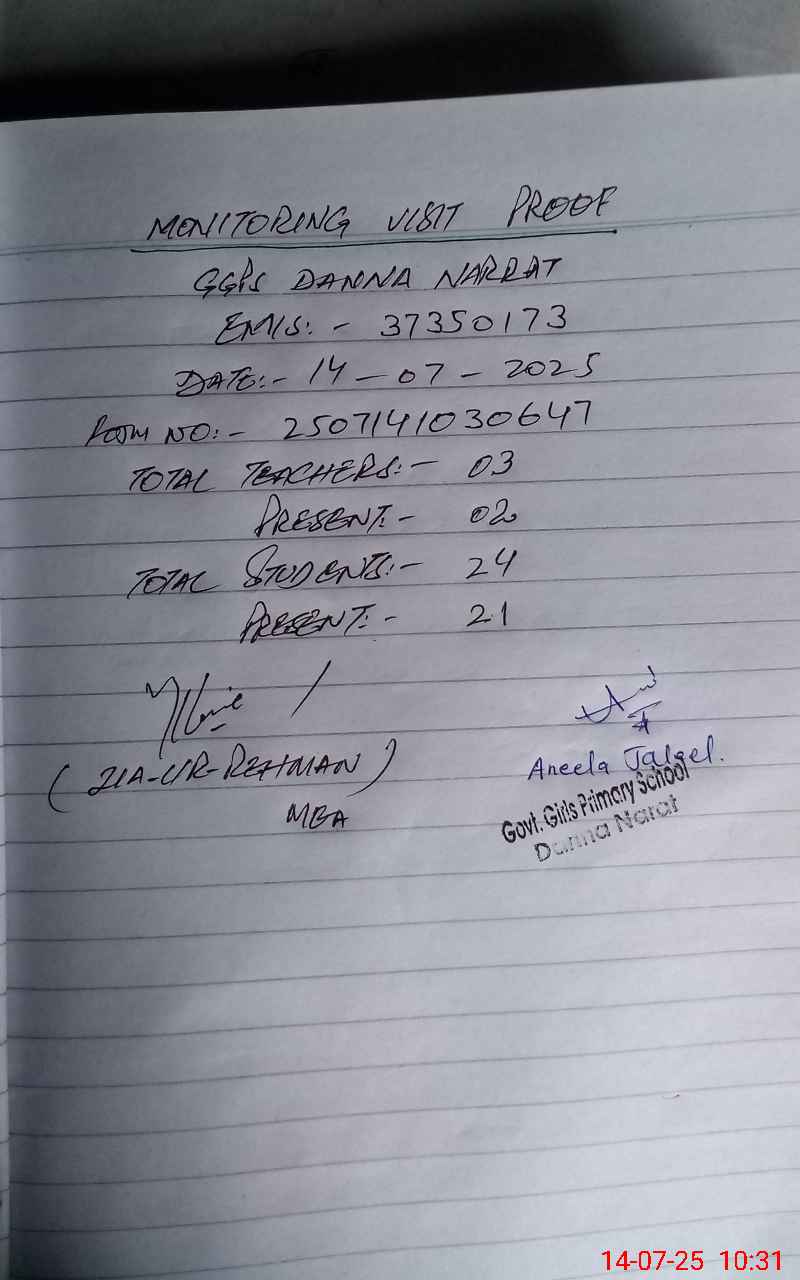 MONITORING VISIT PROOF
GGPS DANNA NARRAT
EMIS:- 37350173
DATE:- 14-07-2025
FORM NO:- 2507141030647
TOTAL TEACHERS:- 03
PRESENT:- 02
TOTAL STUDENTS:- 24
PRESENT:- 21
(ZIA-UR-REHMAN)
MEA
Aneela
Govt. Girls Primary School
Danna Narat
14-07-25 10:31